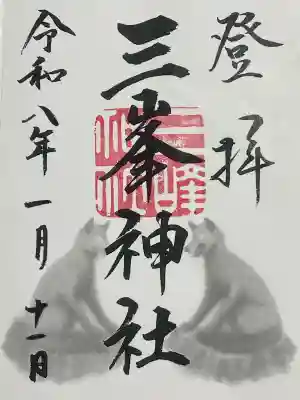 登拝
三峯神社
令和八年一月十一日